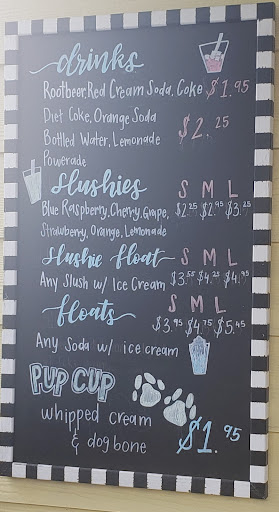 drinks
Rootbeer, Red Cream Soda, Coke $1.95
Diet Coke, Orange Soda
Bottled Water, Lemonade $2.25
Powerade
Slushies S M L
Blue Raspberry, Cherry, Grape, $2.25 $2.95 $3.25
Strawberry, Orange, Lemonade
Slushie Float S M L
Any Slush w/ Ice Cream $3.55 $4.25 $4.95
floats S M L
$3.95 $4.75 $5.45
Any Soda w/ ice cream
PUP CUP
whipped cream
& dog bone $1.95